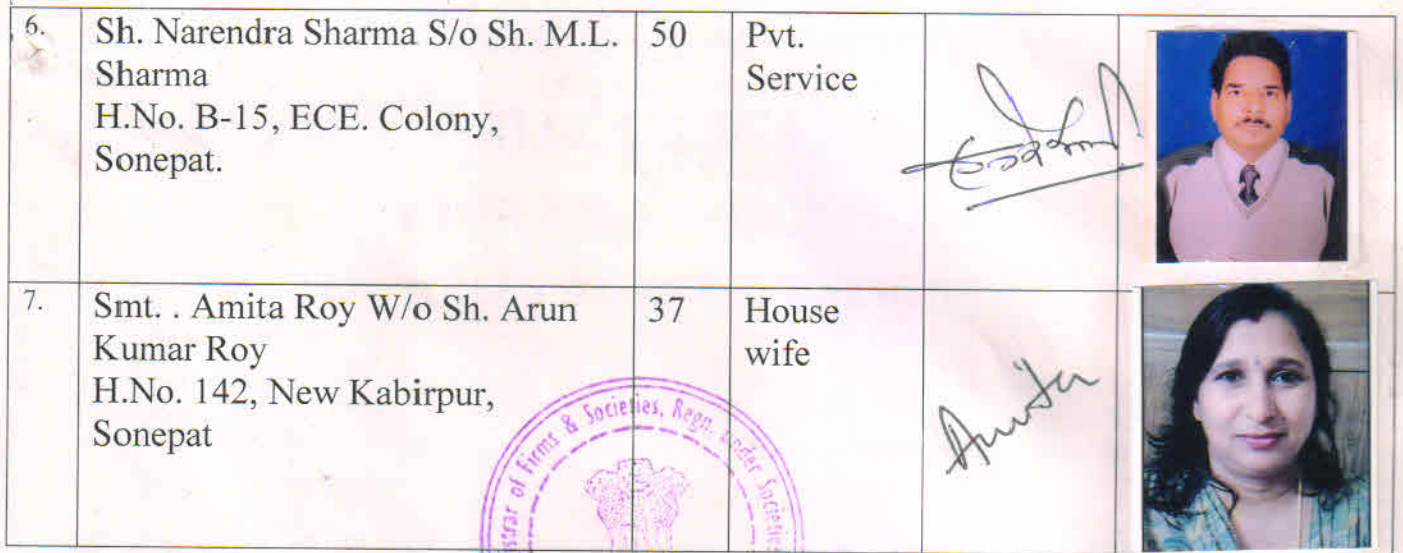 6.
Sh. Narendra Sharma S/o Sh. M.L.
Sharma
H.No. B-15, ECE. Colony,
Sonepat.
50
Pvt.
Service
7.
Smt. . Amita Roy W/o Sh. Arun
Kumar Roy
H.No. 142, New Kabirpur,
Sonepat
37
House
wife
Amita
strar of Firms & Societies, Regn. under Societies